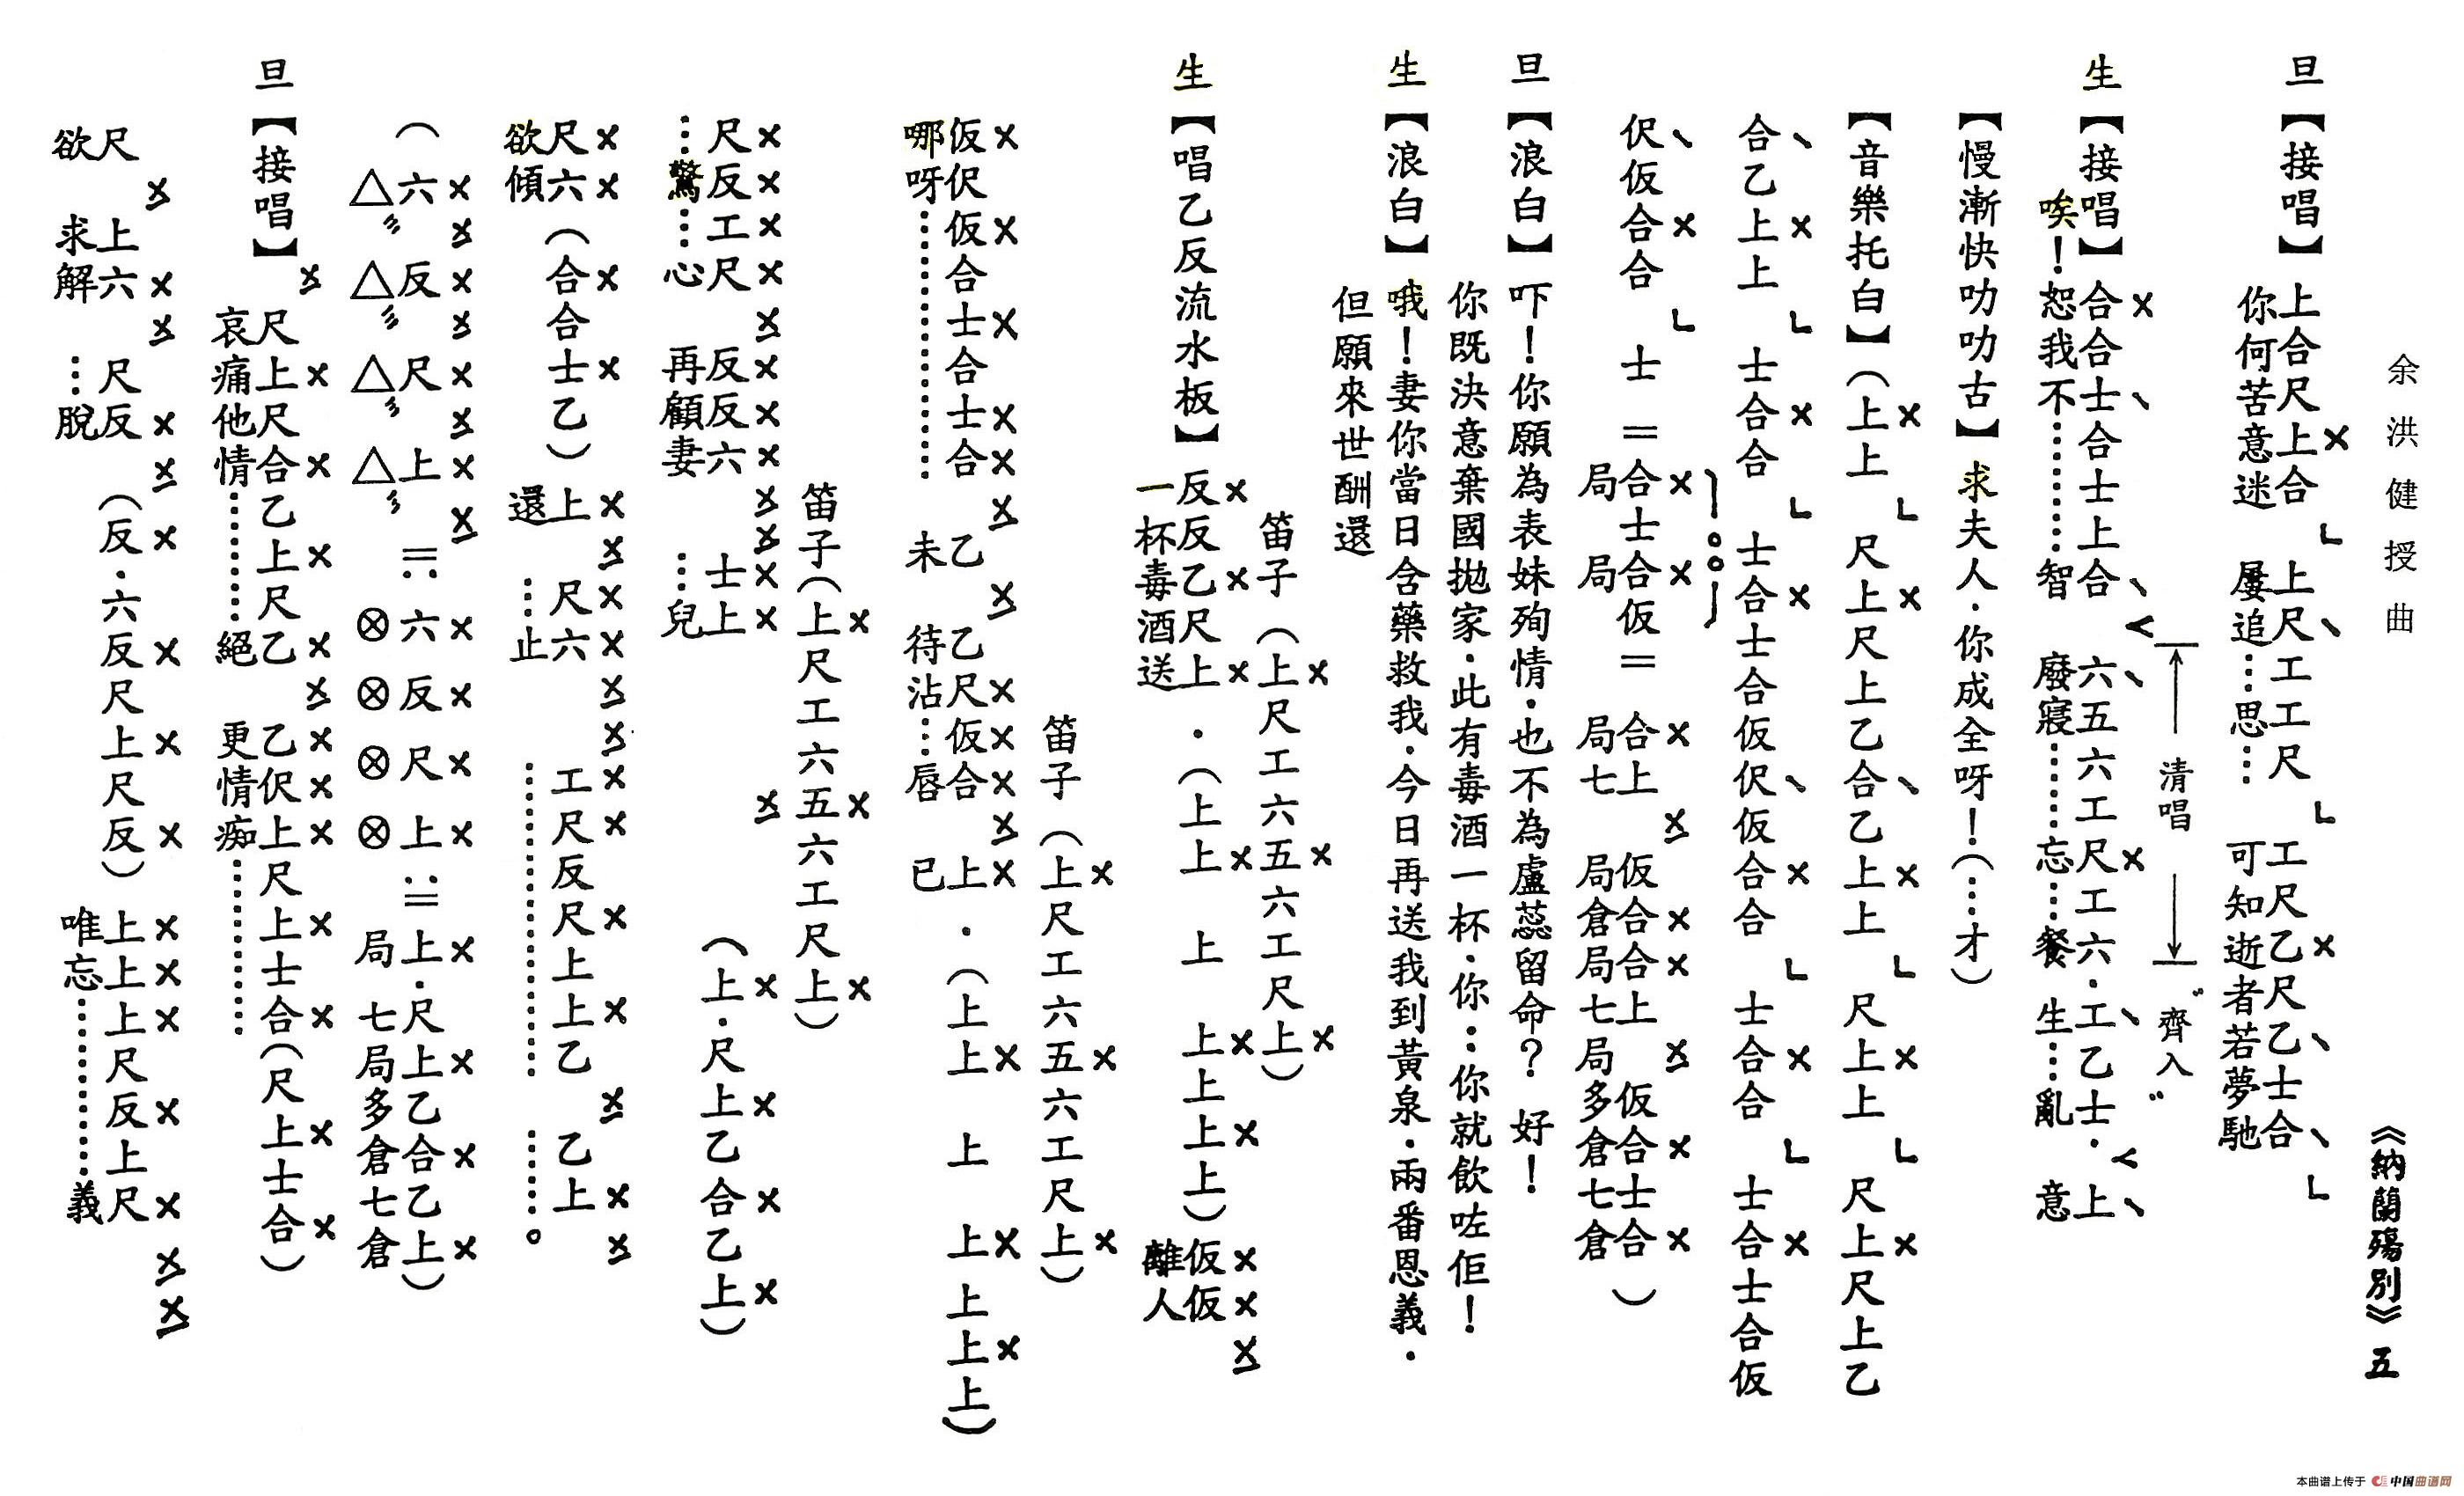 余洪健授曲
《納蘭殤別》五
旦【接唱】上合尺上合上尺工工尺工尺乙尺乙士合
你何苦意迷屢追……思……可知逝者若夢馳
清唱
"齊入"
生【接唱】合合士合士上合六五六工尺工六·工乙士·上
唉！恕我不………智廢寢………忘……餐生……亂意
【慢漸快叻叻古】求夫人·你成全呀！（……才）
【音樂托白】（上上尺上尺上乙合乙上上尺上上尺上尺上乙
合乙上上士合合士合士合仮伬仮合合士合合士合士合仮
伬仮合合士＝合士合仮＝合上仮合合上仮合士合）
局局局七局倉局七局多倉七倉
旦【浪白】吓！你願為表妹殉情·也不為盧蕊留命？好！
你既決意棄國拋家·此有毒酒一杯·你……你就飲咗佢！
生【浪白】哦！妻你當日含藥救我·今日再送我到黃泉·兩番恩義·
但願來世酬還
笛子（上尺工六五六工尺上）
生【唱乙反流水板】反反乙尺上·（上上上上上上上）仮仮
一杯毒酒送離人
笛子（上尺工六五六工尺上）
仮伬仮合士合士合乙乙尺仮合上·（上上上上上上上）
哪呀………未待沾……唇已
笛子（上尺工六五六工尺上）
尺反工尺反反六士上（上·尺上乙合乙上）
……驚……心再顧妻……兒
尺六（合合士乙）上尺六工尺反尺上上乙乙上
欲傾還……止………………。
（六反尺上＝:六反尺上:＝上·尺上乙合乙上）
△△△△⊗⊗⊗⊗局七局多倉七倉
旦【接唱】尺上尺合乙上尺乙乙伬上尺上士合（尺上士合）
哀痛他情………絕更情痴………
尺上六尺反（反·六反尺上尺反）上上上尺反上尺
欲求解……脫唯忘………義
本曲谱上传于 中国曲谱网